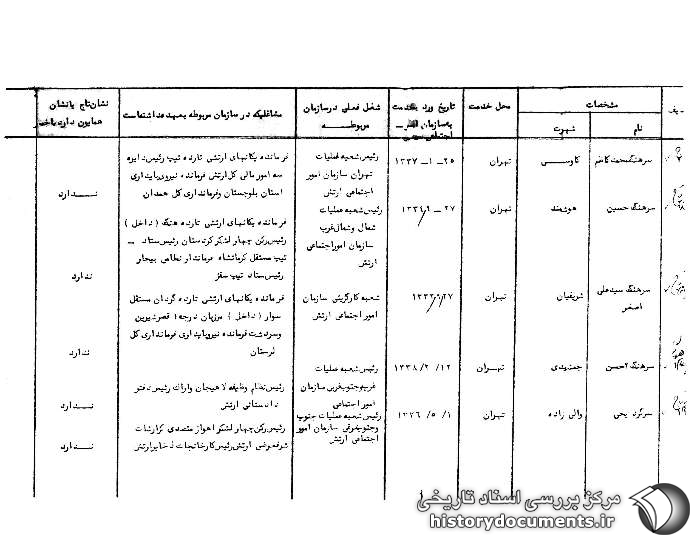 ردیف
مشخصات
نام
شهرت
محل خدمت
تاریخ ورود بخدمت
اجتماعی
شغل فعلی درسازمان
مربوطه
مشاغلیکه در سازمان مربوطه بعهده داشته است
نشان تاج یا نشان
همایون دارد یا خیر
سرهنگ محمد کاظم
کاوسی
تهران
۲۵ - ۱ - ۱۳۳۷
رئیس شعبه عملیات
تهران سازمان امور
اجتماعی ارتش
فرمانده یکانهای ارتشی تارده تیپ رئیس دایره
سه امور مالی کل ارتش فرمانده نیروی پایداری
استان بلوچستان وفرمانداری کل همدان
ندارد
سرهنگ حسین
هوشمند
تهران
رئیس شعبه عملیات
شمال وشمالغرب
سازمان امور اجتماعی
ارتش
فرمانده یکانهای ارتشی تارده هنگ ( داخلی )
رئیس رکن چهار لشکر کردستان رئیس ستاد
تیپ مستقل کرمانشاه فرماندار نظامی بیجار
رئیس ستاد تیپ سقز
ندارد
سرهنگ سید علی
اصغر
شریفیان
تهران
شعبه کارگزینی سازمان
امور اجتماعی ارتش
فرمانده یکانهای ارتشی تارده گردان مستقل
سوار ( داخلی ) مرزبان درجه ۱ قصرشیرین
وسردشت فرمانده نیروپایداری فرمانداری کل
لرستان
ندارد
سرهنگ ۲ حسن
جمشیدی
تهران
۱۲ / ۲ / ۱۳۳۸
رئیس شعبه عملیات
غرب وجنوبغربی سازمان
امور اجتماعی
ارتش
رئیس نظام وظیفه لاهیجان واراک رئیس دفتر
دادستانی ارتش
ندارد
سرگرد یحیی
والی زاده
تهران
۱ / ۵ / ۱۳۳۶
رئیس شعبه عملیات جنوب
وجنوبشرقی سازمان امور
اجتماعی ارتش
رئیس رکن چهار لشکر اهواز متصدی گزارشات
شرفعرضی ارتش رئیس کارخانجات ذخایر ارتش
ندارد
مرکز بررسی اسناد تاریخی
historydocuments.ir